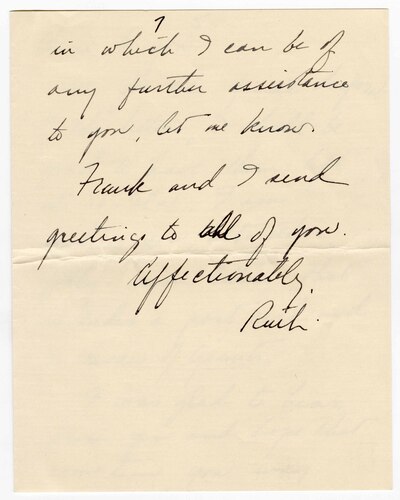 7
in which I can be of
any further assistance
to you, let me know.
Frank and I send
greetings to all of you.
Affectionately,
Ruth.